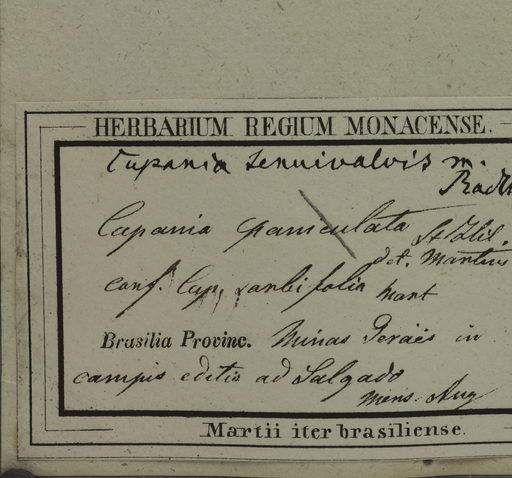 HERBARIUM REGIUM MONACENSE.
Cupania tenuivalvis m.
Radlk
Cupania paniculata St Hil.
det. Martius
conf. Cup. xanthifolia Mart
Brasilia Provinc. Minas Geraës in
campis editis ad Salgado
Mens. Aug
Martii iter brasiliense.